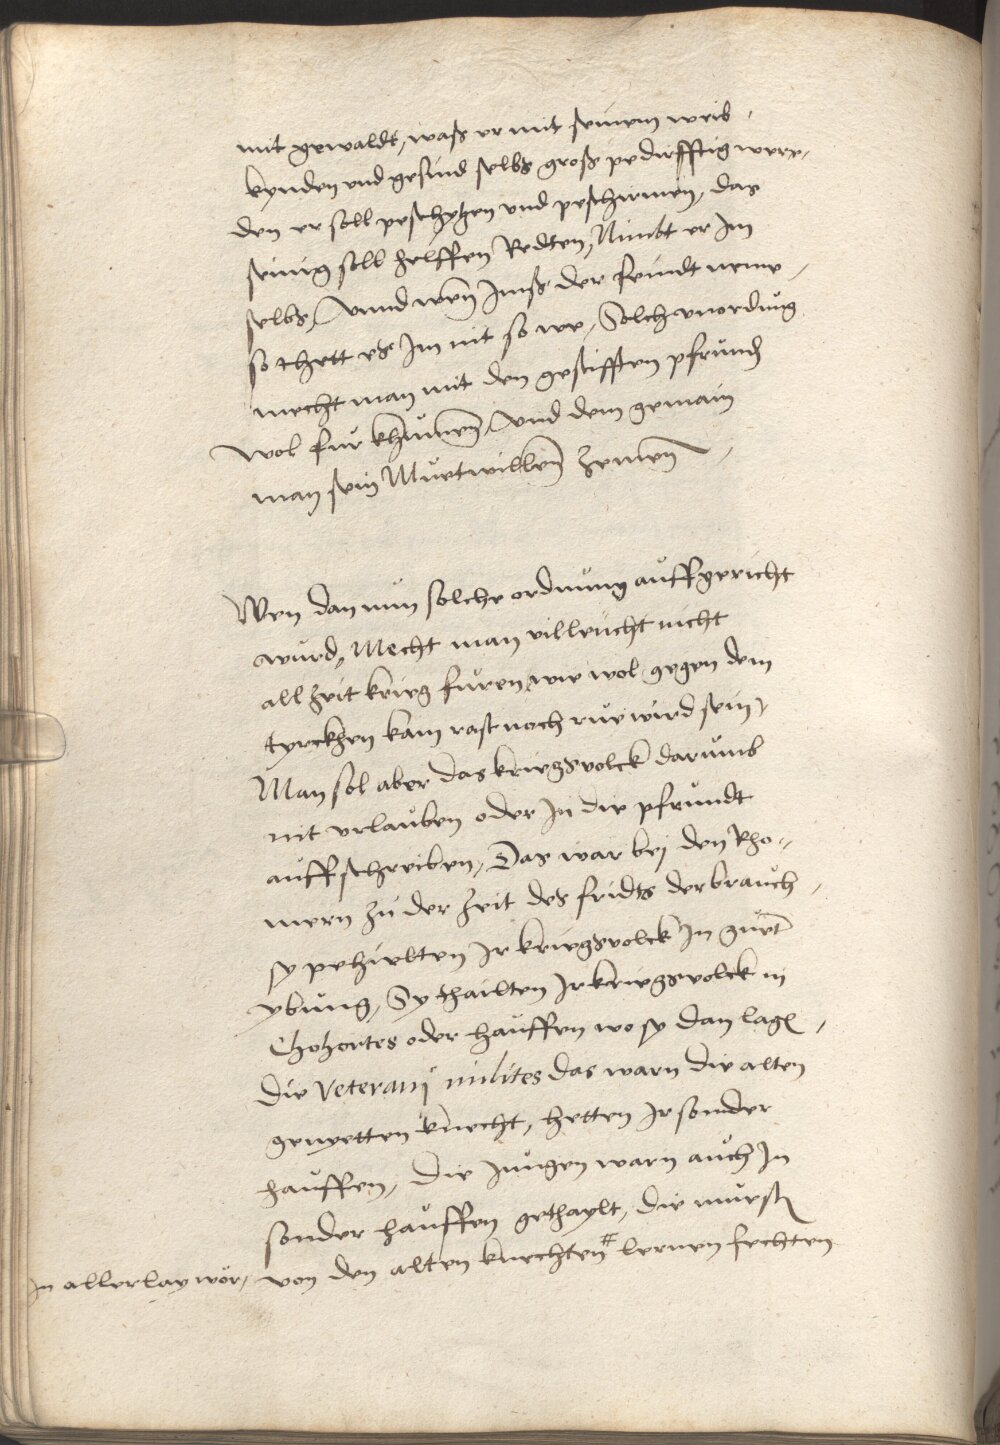 mit gewaldt, waß er mit seinem weib,
kynden und gesind selbs groß pedürfftig were,
den er soll peschyzen und peschirmen, das
seinig soll helffen Redten, Nimbt er Im
selbs, Unnd wen Imß der feindt neme,
so thett es Im nit so we, Solch unordnug
mecht man mit den gestifften pfrund
wol fur khumen, Und dem gemain
man sein Muetwillen zemen,
Wen dan nun solche ordnung auffgericht
wurd, Mecht man villeucht nicht
all zeit krieg furen, wie wol gegen dem
tyrckhen kain rast noch rue wird sein,
Man sol aber das kriegsvolck darumb
nit urlauben oder In die pfrundt
auffschreiben, Das war bej den Rho-
mern zu der zeit des fridts der brauch,
sy pehielten Ir kriegsvolck In guet
ybung, Sy thailten Ir kriegsvolck in
Chohortes oder hauffen wo sy dan lagn,
Die Veteranj milites das warn die alten
geuyetten knecht, hetten Ir sonder
hauffen, Die Jungen warn auch In
sonder hauffen gethaylt, die muesten
von den alten knechten # lernen fechten
In allerlay wör,